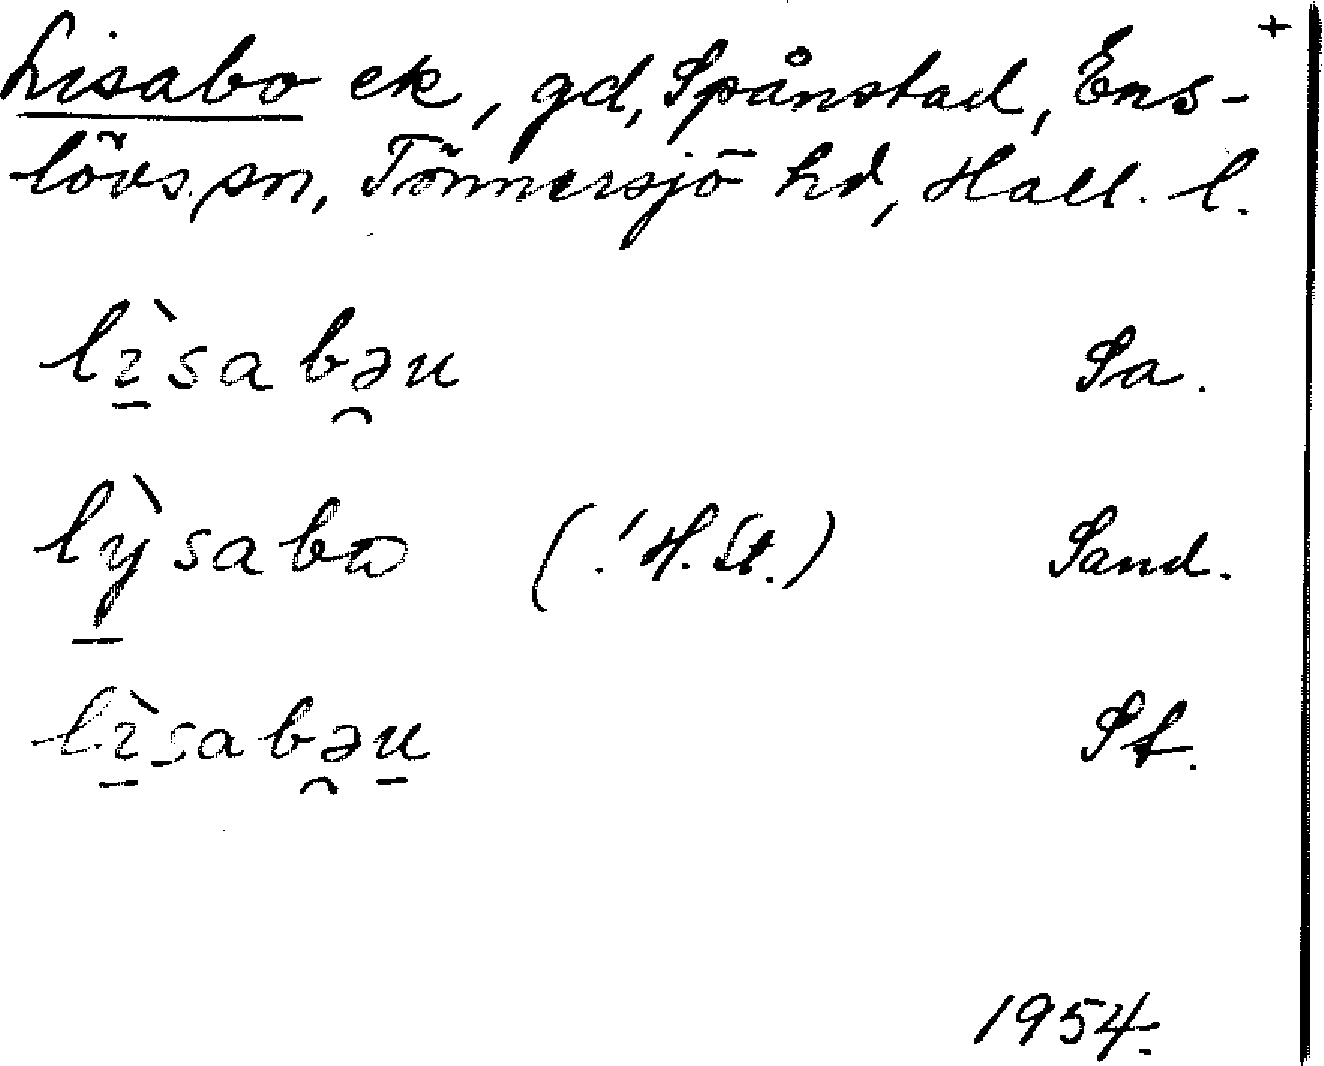 +
Lisabo ek, gd, Spånstad, Ens-
lövs sn, Tönnersjö hd, Hall. l.
lı̱̀sabə̯u Sa.
lỳ̱sabɷ (.' H. St.) Sand.
lı̱̀s̱abə̯u̱ St.
1954.